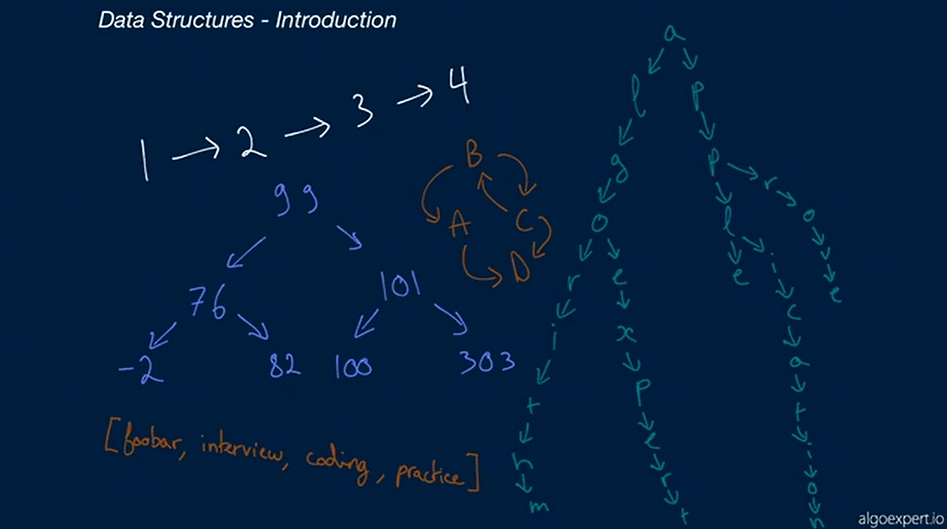 Data Structures - Introduction
1 → 2 → 3 → 4
99
76 101
-2 82 100 303
B
A C
D
[foobar, interview, coding, practice]
a
l p
g p r o v e
o l e
r e i
i x c
t p a
h e t
m r i
t o
n
algoexpert.io